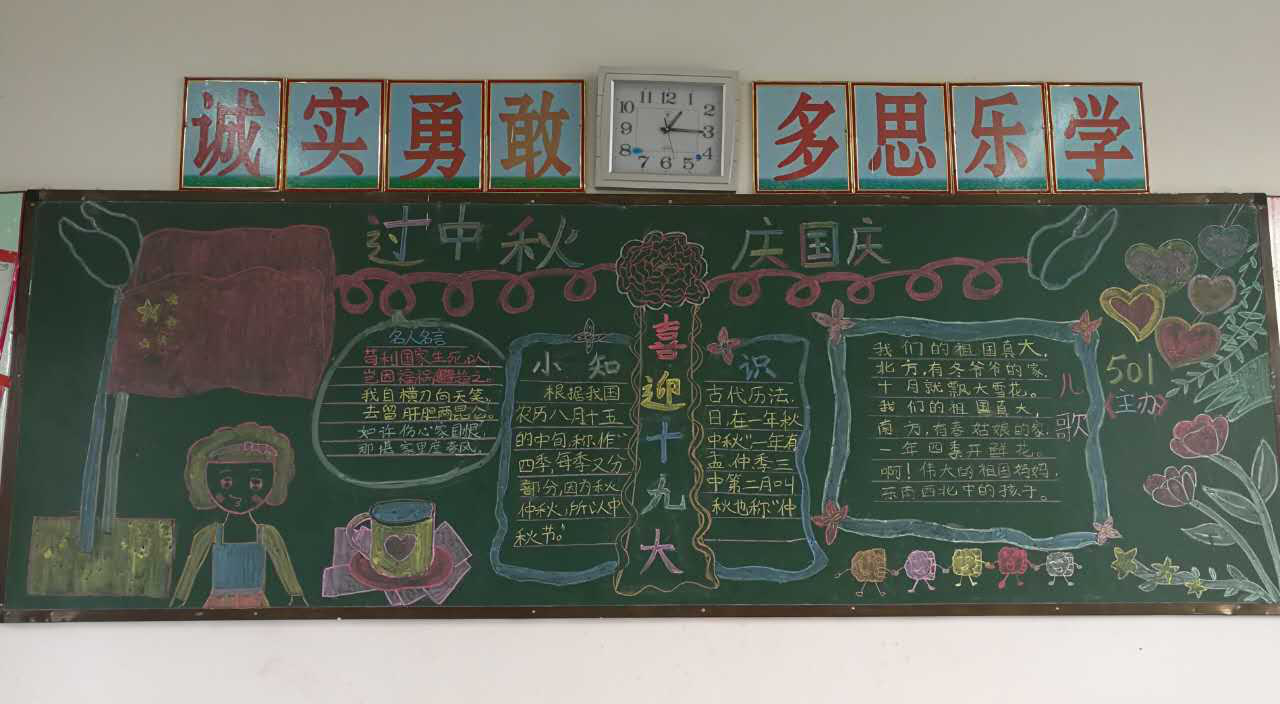 诚实勇敢
多思乐学
11 12 1
10 2
9 3
8 4
7 6 5
过中秋
庆国庆
名人名言
苟利国家生死以,
岂因福祸避趋之。
我自横刀向天笑,
去留肝胆两昆仑。
如许伤心家国恨,
那堪客里度春风。
喜迎十九大
小知
识
根据我国
古代历法,
农历八月十五
日,在一年秋
的中旬,称作“
中秋”一年有
四季,每季又分
孟、仲、季三
部分,因为秋
中第二月叫
仲秋,所以中
秋也称“仲
秋节。”
儿歌
我们的祖国真大,
北方,有冬爷爷的家,
十月就飘大雪花。
我们的祖国真大,
南方,有春姑娘的家,
一年四季开鲜花。
啊!伟大的祖国妈妈,
东南西北中的孩子。
501
《主办》